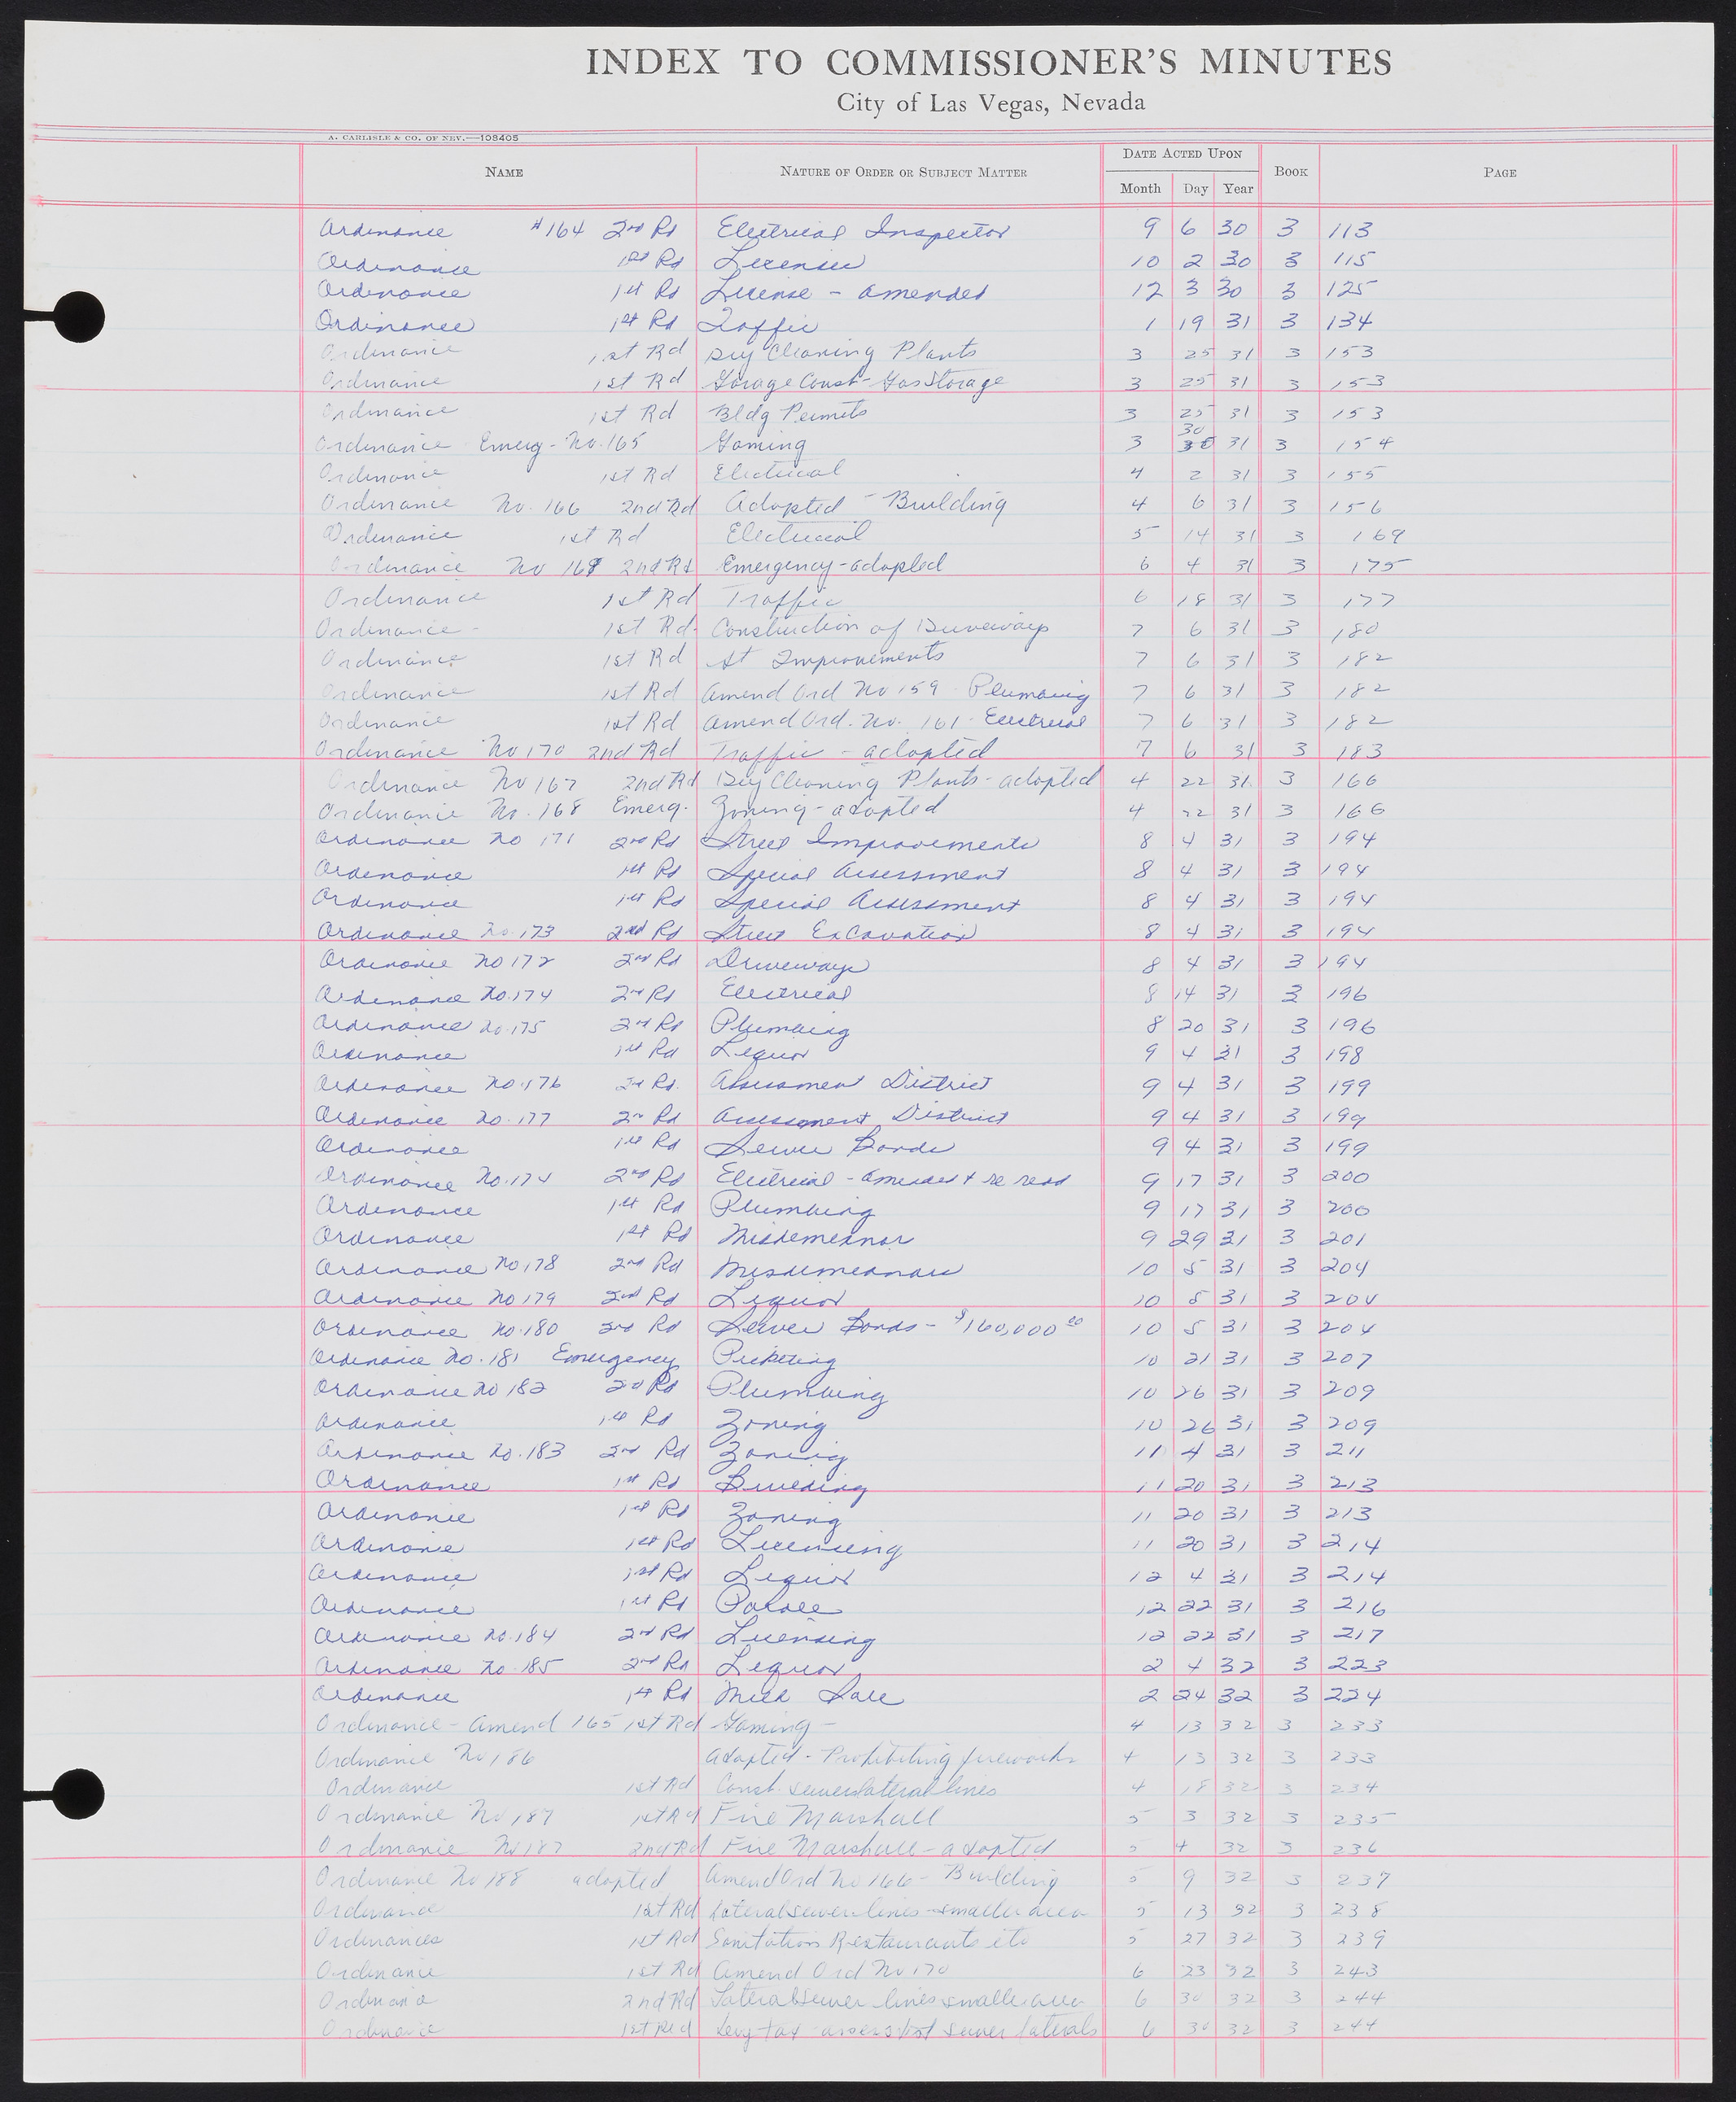 INDEX TO COMMISSIONER'S MINUTES
City of Las Vegas, Nevada
A. CARLISLE & CO. OF NEV.—108405
NAME NATURE OF ORDER OR SUBJECT MATTER DATE ACTED UPON BOOK PAGE
Month Day Year
Ordinance #164 2nd Rd Electrical Inspector 9 6 30 3 113
Ordinance 1st Rd Licenses 10 2 30 3 115
Ordinance 1st Rd License - amended 12 3 30 3 125
Ordinance 1st Rd Traffic 1 19 31 3 134
Ordinance 1st Rd Dry Cleaning Plants 3 25 31 3 153
Ordinance 1st Rd Garage Const - Gas Storage 3 25 31 3 153
Ordinance 1st Rd Bldg Permits 3 25 31 3 153
Ordinance Emerg - No. 165 Gaming 3 30 31 3 154
Ordinance 1st Rd Electrical 4 2 31 3 155
Ordinance No. 166 2nd Rd Adopted - Building 4 6 31 3 156
Ordinance 1st Rd Electrical 5 14 31 3 169
Ordinance No 169 2nd Rd Emergency - adopted 6 4 31 3 175
Ordinance 1st Rd Traffic 6 18 31 3 177
Ordinance - 1st Rd. Construction of Driveways 7 6 31 3 180
Ordinance 1st Rd St Improvements 7 6 31 3 182
Ordinance 1st Rd Amend Ord No 159 - Plumbing 7 6 31 3 182
Ordinance 1st Rd Amend Ord. No. 161 - Electrical 7 6 31 3 182
Ordinance No 170 2nd Rd Traffic - adopted 7 6 31 3 183
Ordinance No 167 2nd Rd Dry Cleaning Plants - adopted 4 22 31 3 166
Ordinance No. 168 Emerg. Zoning - adopted 4 22 31 3 166
Ordinance No 171 2nd Rd Street Improvements 8 4 31 3 194
Ordinance 1st Rd Special Assessment 8 4 31 3 194
Ordinance 1st Rd Special Assessment 8 4 31 3 194
Ordinance No. 173 2nd Rd Street Excavation 8 4 31 3 194
Ordinance No 172 2nd Rd Driveways 8 4 31 3 194
Ordinance No. 174 2nd Rd Electrical 8 14 31 3 196
Ordinance No. 175 2nd Rd Plumbing 8 20 31 3 196
Ordinance 1st Rd Liquor 9 4 31 3 198
Ordinance No. 176 2d Rd. Assessment District 9 4 31 3 199
Ordinance No. 177 2nd Rd Assessment District 9 4 31 3 199
Ordinance 1st Rd Sewer Bonds 9 4 31 3 199
Ordinance No. 174 2nd Rd Electrical - amended & re read 9 17 31 3 200
Ordinance 1st Rd Plumbing 9 17 31 3 200
Ordinance 1st Rd Misdemeanor 9 29 31 3 201
Ordinance No 178 2nd Rd Misdemeanors 10 5 31 3 204
Ordinance No 179 2nd Rd Liquor 10 5 31 3 204
Ordinance No. 180 2nd Rd Sewer Bonds - $160,000 00 10 5 31 3 204
Ordinance No. 181 Emergency Picketing 10 21 31 3 207
Ordinance No 182 2d Rd Plumbing 10 26 31 3 209
Ordinance 1st Rd Zoning 10 26 31 3 209
Ordinance No. 183 2nd Rd Zoning 11 4 31 3 211
Ordinance 1st Rd Building 11 20 31 3 213
Ordinance 1st Rd Zoning 11 20 31 3 213
Ordinance 1st Rd Licensing 11 20 31 3 214
Ordinance 1st Rd Liquor 12 4 31 3 214
Ordinance 1st Rd Parole 12 22 31 3 216
Ordinance No. 184 2nd Rd Licensing 12 22 31 3 217
Ordinance No. 185 2nd Rd Liquor 2 4 32 3 223
Ordinance 1st Rd Milk Sale 2 24 32 3 224
Ordinance - Amend 165 1st Rd Gaming - 4 13 32 3 233
Ordinance No 186 Adopted - Prohibiting fireworks 4 13 32 3 233
Ordinance 1st Rd Const. sewer lateral lines 4 18 32 3 234
Ordinance No 187 1st Rd Fire Marshall 5 3 32 3 235
Ordinance No 187 2nd Rd Fire Marshall - adopted 5 4 32 3 236
Ordinance No 188 adopted Amend Ord No 166 - Building 5 9 32 3 237
Ordinance 1st Rd Lateral sewer lines - smaller area 5 13 32 3 238
Ordinances 1st Rd Sanitation Restaurants etc 5 27 32 3 239
Ordinance 1st Rd Amend Ord No 170 6 23 32 3 243
Ordinance 2nd Rd Lateral sewer lines smaller area 6 30 32 3 244
Ordinance 1st Rd Levy tax - assess dist sewer laterals 6 30 32 3 244